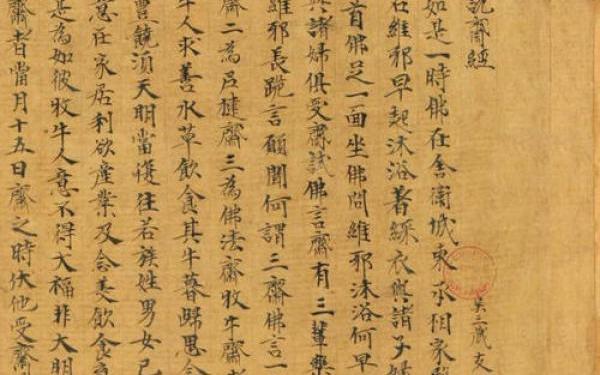 說齋經 吳三藏支
如是一時佛在舍衛城東丞相家
名維邪早起沐浴著綵衣與諸子婦
首佛足一面坐佛問維邪沐浴何早
與諸婦俱受齋戒佛言齋有三輩樂
維邪長跪言願聞何謂三齋佛言一
齋二為尼揵齋三為佛法齋牧牛齋
牛人求善水草飲食其牛暮歸思念
豐饒須天明當復往若族姓男女已
意在家居利欲產業及念美飲食
是為如彼牧牛人意不得大福非大明
齋者當月十五日齋之時伏地受齋